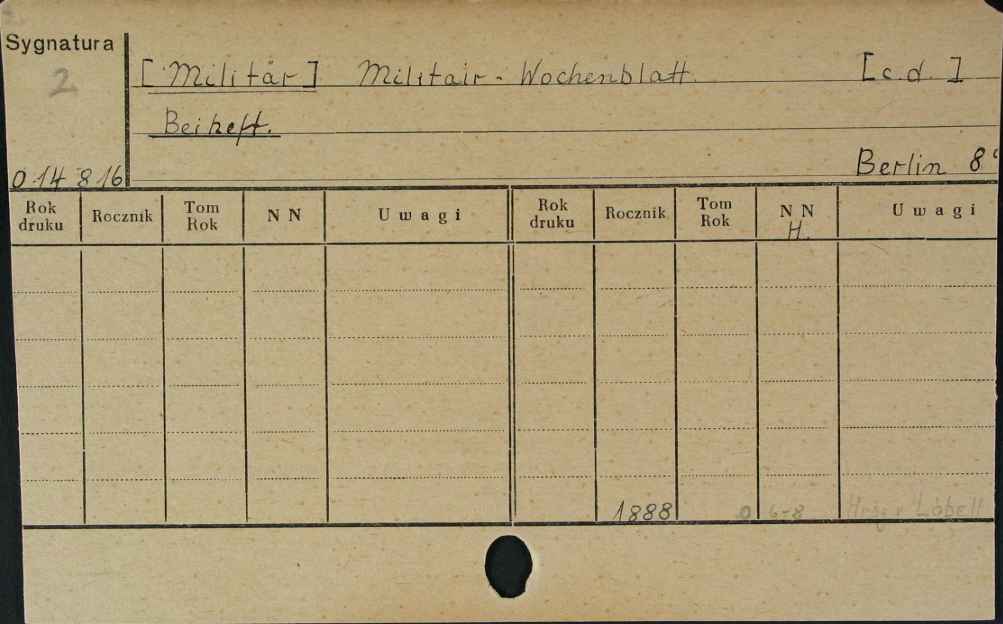 Sygnatura
2
[Militär] Militair - Wochenblatt. [c.d.]
Beiheft.
0.14 816
Berlin 8°
Rok druku Rocznik Tom Rok N N Uwagi Rok druku Rocznik Tom Rok N N Uwagi
H.
1888 0 6-8 Löbell